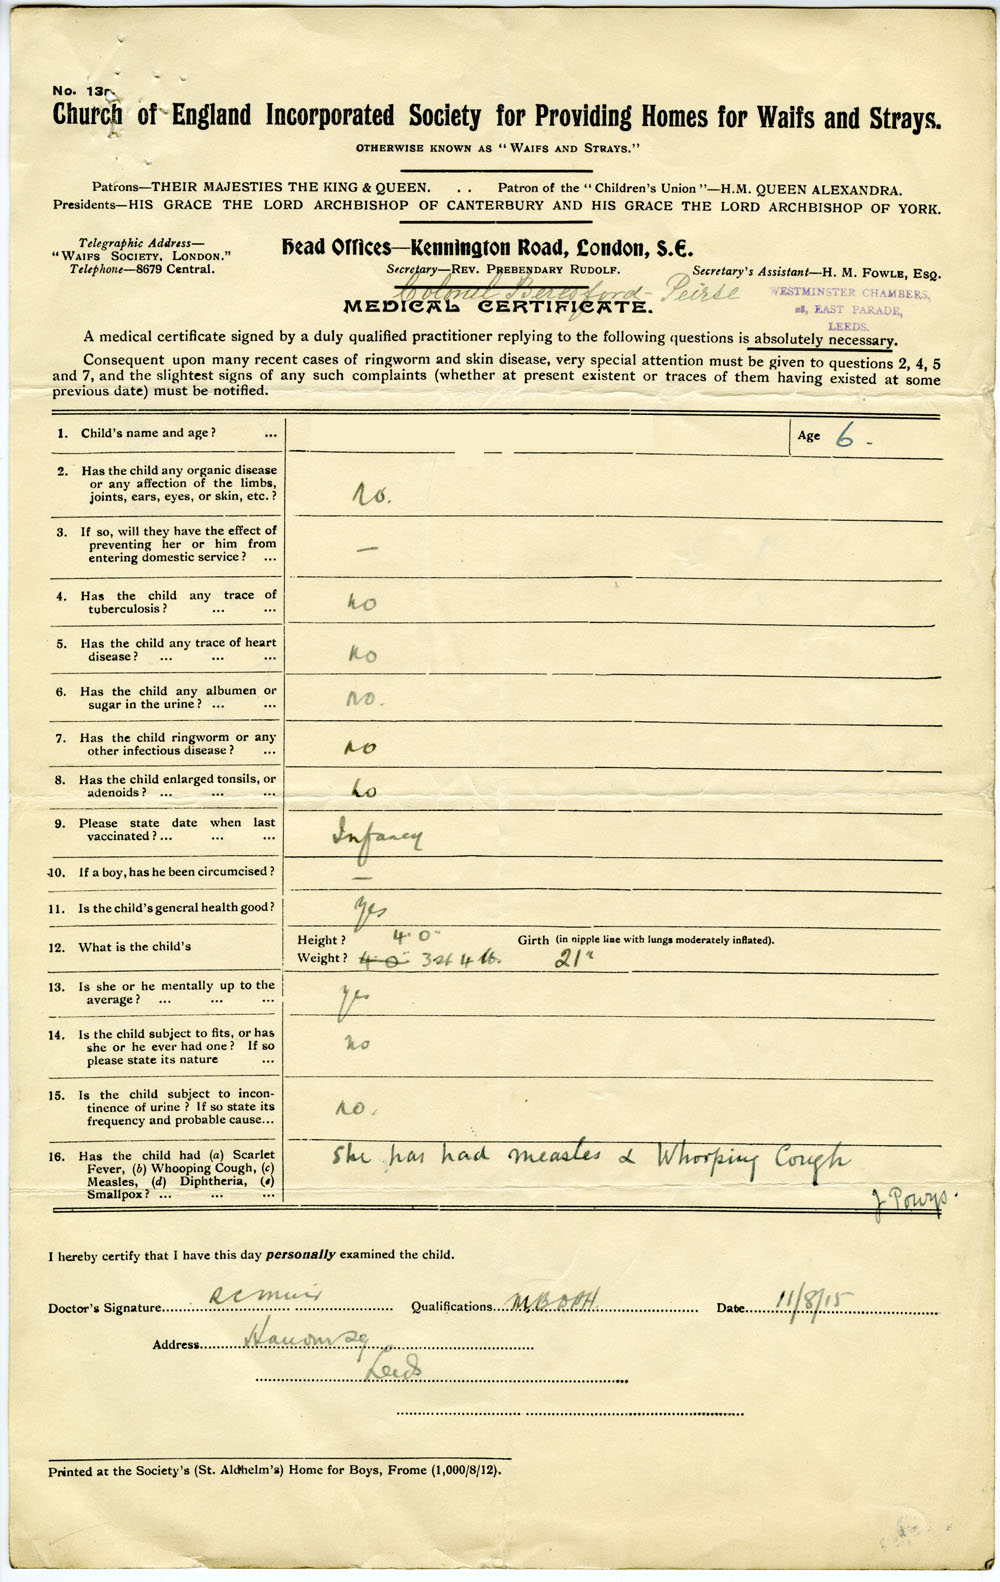 No. 13
Church of England Incorporated Society for Providing Homes for Waifs and Strays.
OTHERWISE KNOWN AS "WAIFS AND STRAYS."
Patrons—THEIR MAJESTIES THE KING & QUEEN. . . Patron of the "Children's Union"—H.M. QUEEN ALEXANDRA.
Presidents—HIS GRACE THE LORD ARCHBISHOP OF CANTERBURY AND HIS GRACE THE LORD ARCHBISHOP OF YORK.
Telegraphic Address—
"WAIFS SOCIETY, LONDON."
Telephone—8679 Central.
Head Offices—Kennington Road, London, S.E.
Secretary—REV. PREBENDARY RUDOLF.
Secretary's Assistant—H. M. FOWLE, ESQ.
Colonel Beresford-Peirse
WESTMINSTER CHAMBERS,
EAST PARADE,
LEEDS.
MEDICAL CERTIFICATE.
A medical certificate signed by a duly qualified practitioner replying to the following questions is absolutely necessary.
Consequent upon many recent cases of ringworm and skin disease, very special attention must be given to questions 2, 4, 5
and 7, and the slightest signs of any such complaints (whether at present existent or traces of them having existed at some
previous date) must be notified.
1. Child's name and age? ... Age 6 -
2. Has the child any organic disease
or any affection of the limbs,
joints, ears, eyes, or skin, etc.? no.
3. If so, will they have the effect of
preventing her or him from
entering domestic service? ... —
4. Has the child any trace of
tuberculosis? ... ... no
5. Has the child any trace of heart
disease? ... ... ... no
6. Has the child any albumen or
sugar in the urine? ... ... no.
7. Has the child ringworm or any
other infectious disease? ... no
8. Has the child enlarged tonsils, or
adenoids? ... ... ... no
9. Please state date when last
vaccinated? ... ... ... Infancy
10. If a boy, has he been circumcised? —
11. Is the child's general health good? yes
12. What is the child's Height? 4' 0" Girth (in nipple line with lungs moderately inflated).
Weight? 4' 0" 3st 4 lb. 21"
13. Is she or he mentally up to the
average? ... ... ... yes
14. Is the child subject to fits, or has
she or he ever had one? If so
please state its nature ... no
15. Is the child subject to incon-
tinence of urine? If so state its
frequency and probable cause... no.
16. Has the child had (a) Scarlet
Fever, (b) Whooping Cough, (c)
Measles, (d) Diphtheria, (e)
Smallpox? ... ... ... She has had measles & Whooping Cough
J Powys.
I hereby certify that I have this day personally examined the child.
Doctor's Signature R C Muir Qualifications MB DPH Date 11/8/15
Address Hanover Sq
Leeds
Printed at the Society's (St. Aldhelm's) Home for Boys, Frome (1,000/8/12).